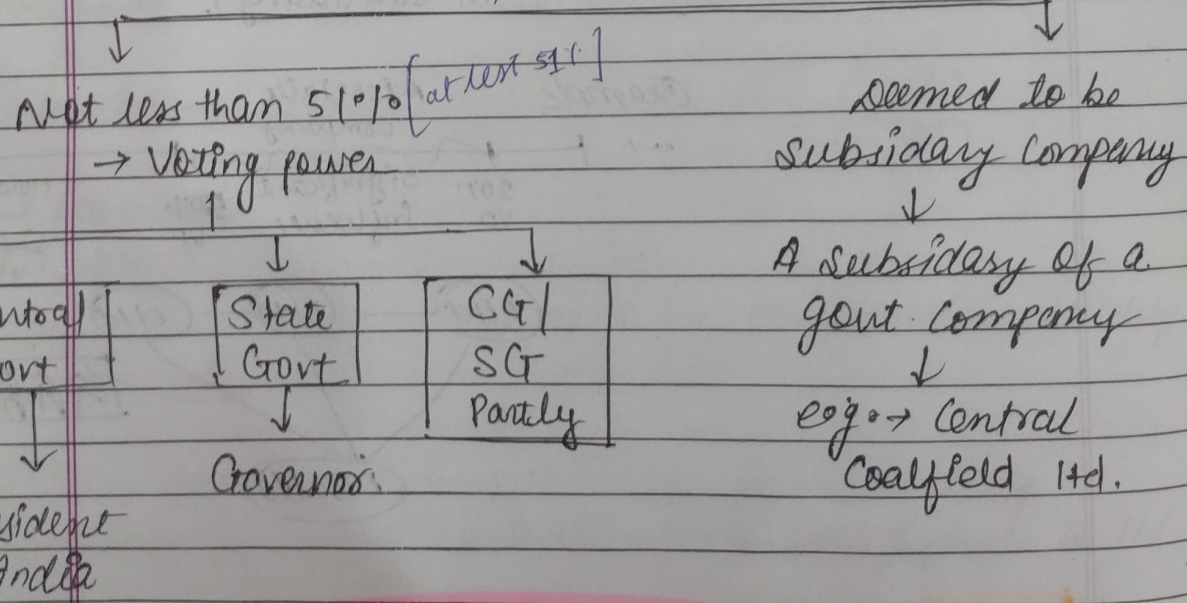 Not less than 51%
[at lest 51%]
→ Voting power
ntral
ovt
State
Govt
CG/
SG
Partly
Governor.
sident
India
Deemed to be
subsidary company
A subsidary of a
govt. company
e.g. → Central
Coalfield ltd.